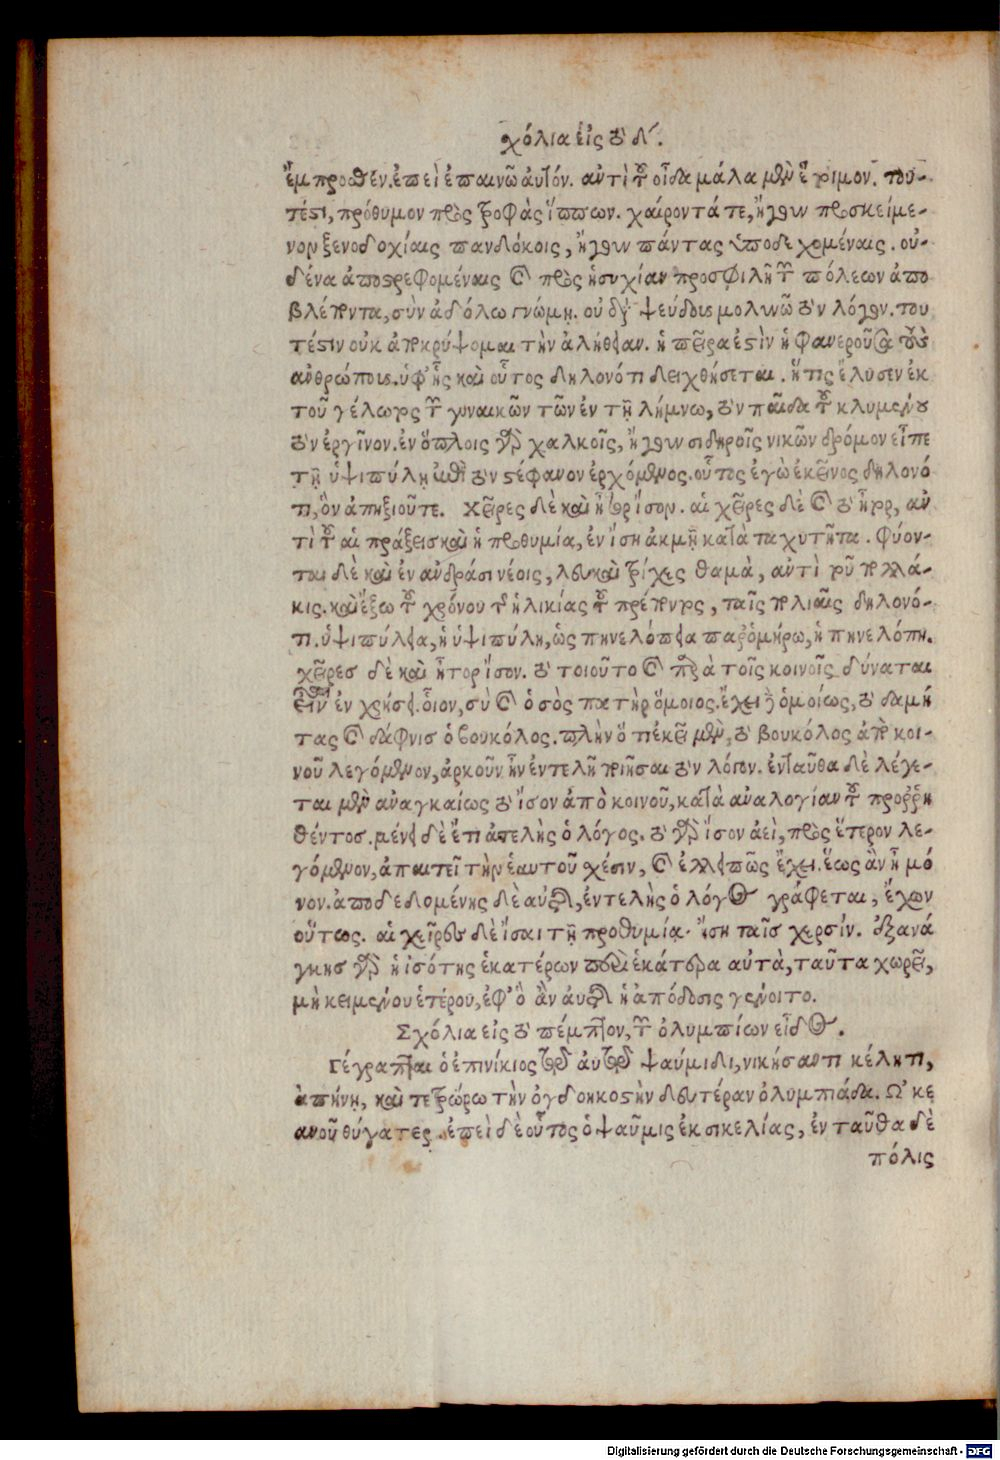 χόλια εἰς τὸ δ´.
ἔμπροσθεν. ἐπεὶ ἐπαινῶ αὐτόν. ἀντὶ τοῦ οἶδα μάλα μὲν ἕτοιμον. του-
τέστι, πρόθυμον πρὸς τροφὰς ἵππων. χαίροντά τε, ἤγουν προσκείμε-
νον ξενοδοχίαις πανδόκοις, ἤγουν πάντας ὑποδεχομέναις. οὐ-
δένα ἀποστρεφομέναις καὶ πρὸς ἡσυχίαν προσφιλῆ τῶν πόλεων ἀπο
βλέποντα, σὺν ἀδόλω γνώμῃ. οὐ δὴ ψεύδοις μολυνῶ τὸν λόγον. του
τέστιν οὐκ ἀποκρύψομαι τὴν ἀλήθειαν. ἡ πεῖρα ἐστὶν ἡ φανεροῦσα τοὺς
ἀνθρώποις. ὑφ' ἧς καὶ οὗτος δηλονότι δειχθήσεται. ἥτις ἔλυσεν ἐκ
τοῦ γέλωτος τῶν γυναικῶν τῶν ἐν τῇ λήμνω, τὸν παῖδα τοῦ κλυμένου
τὸν ἐργῖνον. ἐν ὅπλοις γὰρ χαλκοῖς, ἤγουν σιδηροῖς νικῶν δρόμον εἶπε
τῇ ὑψιπύλῃ ἐπὶ τὸν στέφανον ἐρχόμενος. οὗτος ἐγὼ ἐκεῖνος δηλονό
τι, ὃν ἀπηξιοῦτε. χεῖρες δὲ καὶ ἦτορ ἴσον. αἱ χεῖρες δὲ καὶ τὸ ἦτορ, ἀν
τὶ τοῦ αἱ πράξεις καὶ ἡ προθυμία, ἐν ἴση ἀκμῇ κατὰ ταχυτῆτα. φύον-
ται δὲ καὶ ἐν ἀνδράσι νέοις, λευκαὶ τρίχες θαμὰ, ἀντὶ τοῦ πολλά-
κις. καὶ ἔξω τοῦ χρόνου τῆς ἡλικίας τοῦ πρέποντος, ταῖς πολιαῖς δηλονό-
τι. ὑψιπύλεια, ἡ ὑψιπύλη, ὡς πηνελόπεια παρ' ὁμήρω, ἡ πηνελόπη.
χεῖρεσ δὲ καὶ ἦτορ ἴσον. τὸ τοιοῦτο καὶ παρὰ τοῖς κοινοῖς δύναται
εἶναι ἐν χρήσει. οἷον, σὺ καὶ ὁ σὸς πατὴρ ὅμοιος. ἔχει γὰρ ὁμοίως, τὸ δαμή
τας καὶ δάφνισ ὁ βουκόλος. πλὴν ὅτι ἐκεῖ μὲν, τὸ βουκόλος ἀπὸ κοι-
νοῦ λεγόμενον, ἀρκοῦν ἦν ἐντελῆ ποιῆσαι τὸν λόγον. ἐνταῦθα δὲ λέγε-
ται μὲν ἀναγκαίως τὸ ἴσον ἀπὸ κοινοῦ, κατὰ ἀναλογίαν τοῦ προρρη
θέντοσ. μένει δὲ ἔτι ἀτελὴς ὁ λόγος. τὸ γὰρ ἴσον ἀεὶ, πρὸς ἕτερον λε-
γόμενον, ἀπαιτεῖ τὴν ἑαυτοῦ χέσιν, καὶ ἐλλειπῶς ἔχει. ἕως ἂν ᾖ μό
νον. ἀποδεδομένης δὲ αὐτῆς, ἐντελὴς ὁ λόγος γράφεται, ἔχων
οὕτως. αἱ χεῖρες δὲ ἴσαι τῇ προθυμίᾳ. ἴση ταῖσ χερσίν. ἐξ ἀνά
γκησ γὰρ ἡ ἰσότης ἑκατέρων περὶ ἑκάτερα αὐτὰ, ταῦτα χωρεῖ,
μὴ κειμένου ἑτέρου, ἐφ' ὃ ἂν αὐτῆς ἡ ἀπόδοσις γένοιτο.
Σχόλια εἰς τὸ πέμπτον, τῶν ὀλυμπίων εἶδος.
Γέγραπται ὁ ἐπινίκιος τῷ αὐτῷ ψαύμιδι, νικήσαντι κέλητι,
ἀπήνῃ, καὶ τεθρίππω τὴν ὀγδοηκοστὴν δευτέραν ὀλυμπιάδα. Ὠκε
ανοῦ θύγατερ. ἐπεὶ δὲ οὗτος ὁ ψαῦμις ἐκ σικελίας, ἐνταῦθα δὲ
πόλις
Digitalisierung gefördert durch die Deutsche Forschungsgemeinschaft - DFG